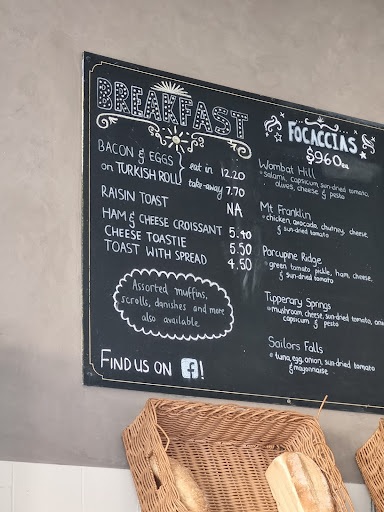 BREAKFAST
BACON & EGGS
on TURKISH ROLL
eat in 12.20
take-away 7.70
RAISIN TOAST NA
HAM & CHEESE CROISSANT 5.40
CHEESE TOASTIE 5.50
TOAST WITH SPREAD 4.50
Assorted muffins,
scrolls, danishes and more
also available
FIND US ON f!
FOCACCIAS
$9.60 ea
Wombat Hill
salami, capsicum, sun-dried tomato,
olives, cheese & pesto
Mt Franklin
chicken, avocado, chutney, cheese,
& sun-dried tomato
Porcupine Ridge
green tomato pickle, ham, cheese,
& sun-dried tomato
Tipperary Springs
mushroom, cheese, sun-dried tomato,
capsicum & pesto
Sailors Falls
tuna, egg, onion, sun-dried tomato
& mayonnaise